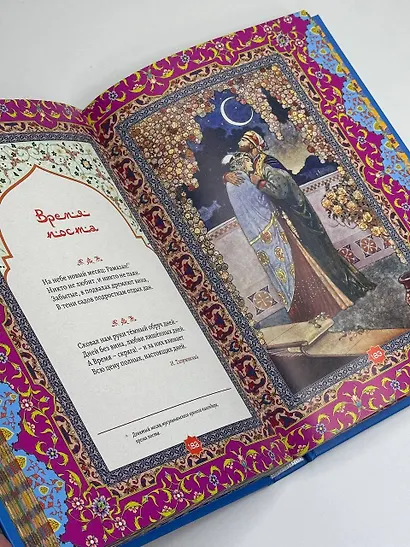 Время
поста
На небе новый месяц: Рамазан!
Никто не любит, и никто не пьян.
Забытые, в подвалах дремлют вина,
В тени садов подросткам отдых дан.
Сковал нам руки тёмный обруч дней –
Дней без вина, любви лишённых дней.
А Время – скряга! – и за них взимает
Всю цену полных, настоящих дней.
И. Тхоржевский
* Девятый месяц мусульманского лунного календаря,
время поста.
182
183